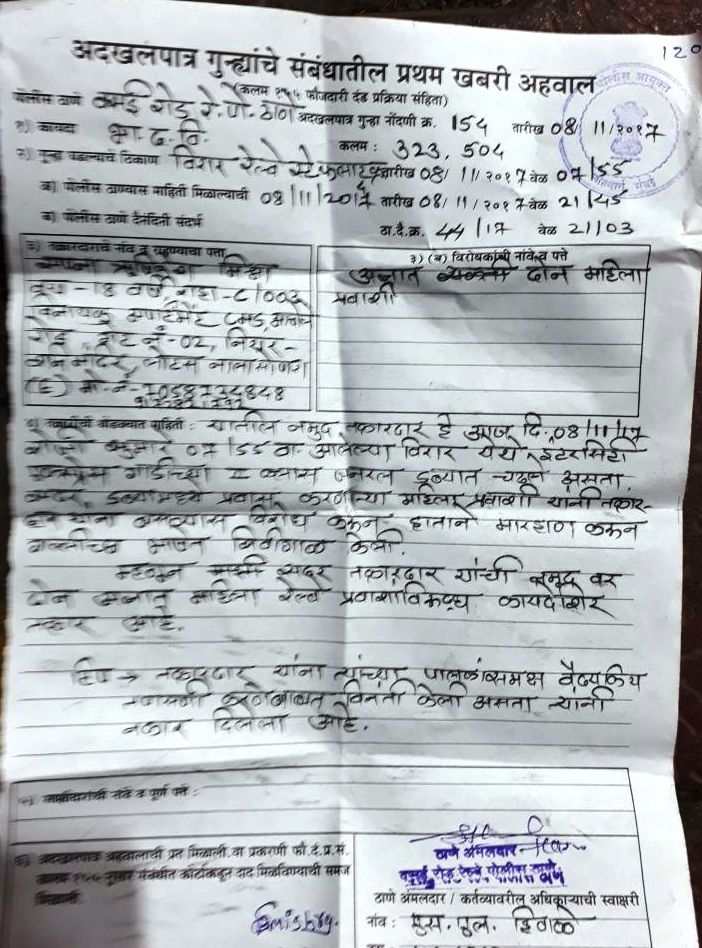 120
अदखलपात्र गुन्ह्यांचे संबंधातील प्रथम खबरी अहवाल
(कलम १५५ फौजदारी दंड प्रक्रिया संहिता)
पोलीस ठाणे वसई रोड रे.पो. ठाणे अदखलपात्र गुन्हा नोंदणी क्र. 154 तारीख 08/11/२०१7
१) कायदा भा.द.वि. कलम : 323, 504
२) गुन्हा घडल्याचे ठिकाण विरार रेल्वे स्टे तारीख 08/11/२०१7 वेळ 07/55
अ) पोलीस ठाण्यास माहिती मिळाल्याची 08/11/2017 तारीख 08/11/२०१7 वेळ 21/45
ब) पोलीस ठाणे दैनंदिनी संदर्भ ठा.दै.क्र. 44/17 वेळ 21/03
३) तक्रारदाराचे नांव व राहण्याचा पत्ता
मिश्रा
वय - 18 वर्षे, राहा - C/003
विनायक अपार्टमेंट
रोड, गेट नं - 02, नियर -
नालासोपारा
(E) मो.नं -
३) (ब) विरोधकांची नांवे व पत्ते
अज्ञात दोन महिला
प्रवाशी
माहिती : यातील नमुद तक्रारदार हे आज दि. 08/11/17
रोजी 07/55 वा. आलेल्या विरार इंटरसिटी
गाडीच्या II क्लास जनरल डब्यात चढले असता.
सदर डब्यामध्ये प्रवास करणाऱ्या महिला प्रवाशी यांनी तक्रार-
दार यांना बसण्यास विरोध करून हाताने मारहाण करून
शिवीगाळ केली.
म्हणून सदर तक्रारदार यांची नमुद वर
दोन अज्ञात महिला रेल्वे प्रवाशांविरुद्ध कायदेशिर
तक्रार आहे.
टिप → तक्रारदार यांना त्यांच्या पालकांसमक्ष वैद्यकिय
तपासणी करणेबाबत विनंती केली असता त्यांनी
नकार दिलेला आहे.
नांवे व पूर्ण पत्ते :
अदखलपात्र अहवालाची प्रत मिळाली. या प्रकरणी फौ.दं.प्र.सं.
कलम १५५ नुसार संबंधीत कोर्टाकडून दाद मिळविण्याची समज
मिळाली.
ठाणे अंमलदार
वसई रोड रेल्वे पोलीस ठाणे
ठाणे अंमलदार / कर्तव्यावरील अधिकाऱ्याची स्वाक्षरी
नांव : एस. एल. हिवाळे